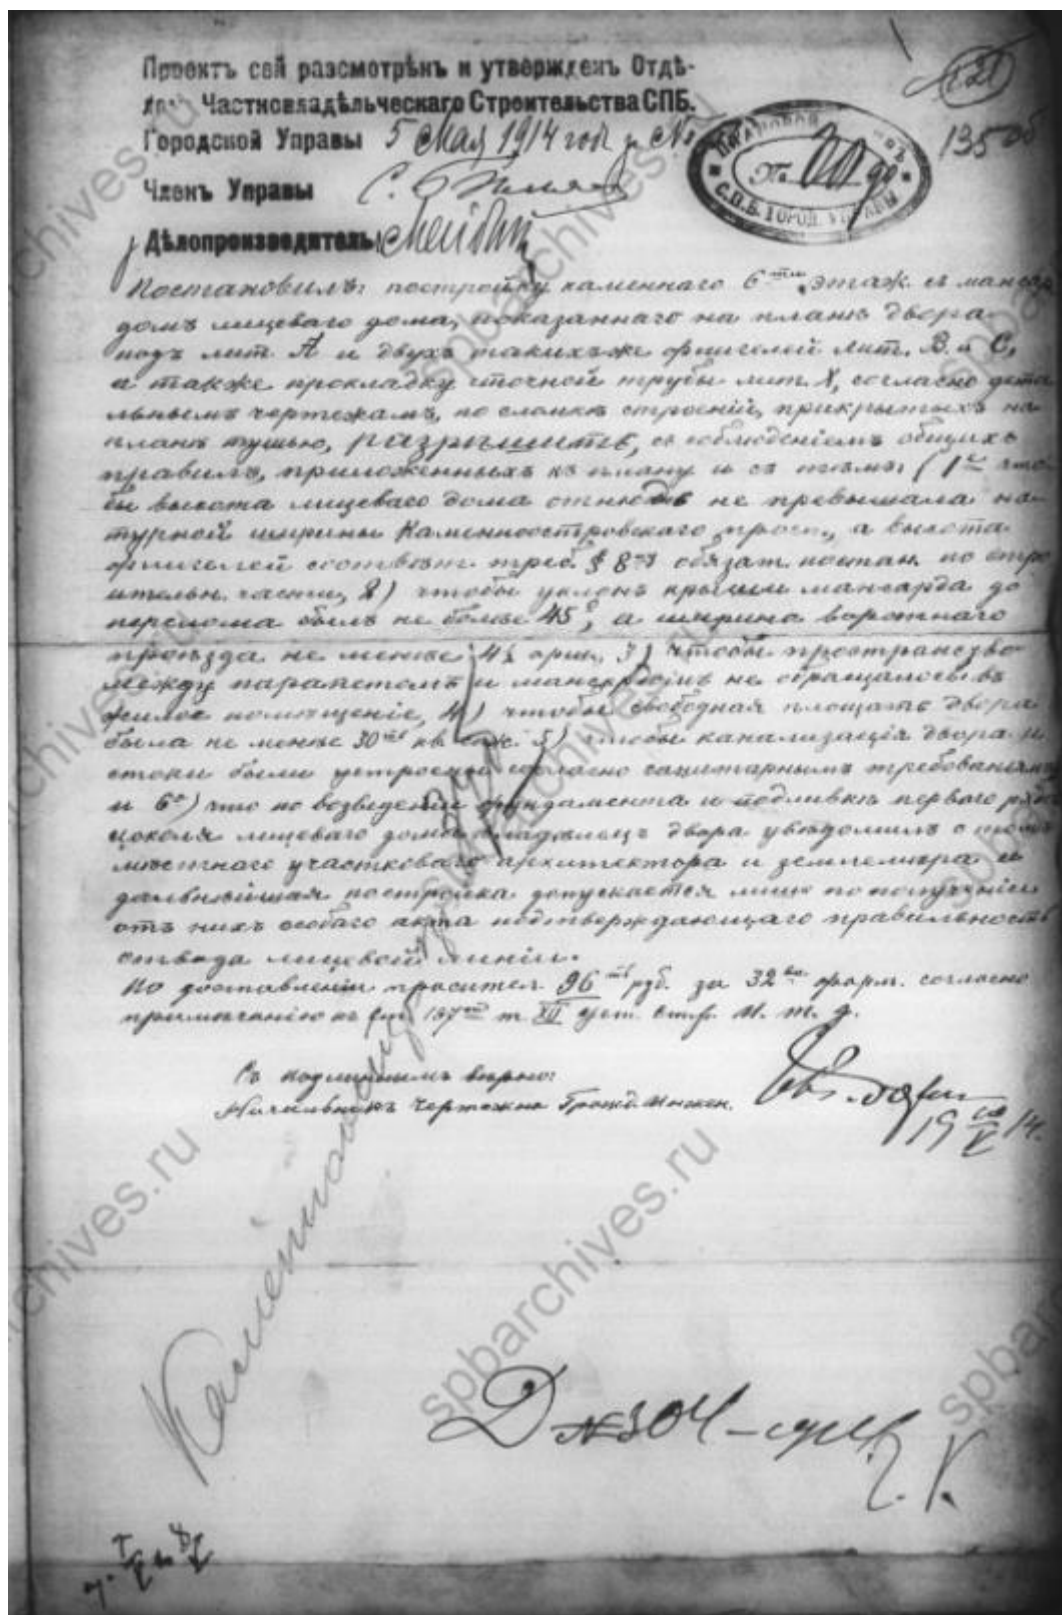 121
135 об
Проектъ сей разсмотрѣнъ и утвержденъ Отдѣ-
Частновладѣльческаго Строительства СПБ.
Городской Управы 5 Мая 1914 года №
С.П.Б. ГОРОД. УПРАВЫ
Членъ Управы
Дѣлопроизводитель
Постановилъ: постройку каменнаго 6 этаж. съ мансар
домъ лицеваго дома, показаннаго на планѣ двора
подъ лит. А и двухъ такихъ же флигелей лит. В и С,
а также прокладку сточной трубы лит. X, согласно дета
льнымъ чертежамъ, по сломкѣ строеній, прикрытыхъ на
планѣ тушью, разрѣшить, съ соблюденіемъ общихъ
правилъ, приложенныхъ къ плану и съ тѣмъ: (1е что-
бы высота лицеваго дома отнюдь не превышала на-
турной ширины Каменноостровскаго просп., а высота
флигелей соотвѣт. треб. § 8го обязат. постан. по стро
ительн. части, 2) чтобы уклонъ крыши мансарда до
перелома былъ не болѣе 45°, а ширина воротнаго
проѣзда не менѣе 4½ арш. 3) чтобы пространство
между парапетомъ и мансардомъ не обращалось въ
жилое помѣщеніе, 4) чтобы свободная площадь двора
была не менѣе 30 кв. саж. 5) чтобы канализація двора и
стоки были устроены согласно санитарнымъ требованіямъ
и 6е) что по возведеніи фундамента и подливкѣ перваго ряда
цоколя лицеваго дома владѣлецъ двора увѣдомилъ о томъ
мѣстнаго участковаго архитектора и землемѣра и
дальнѣйшая постройка допускается лишь по полученіи
отъ нихъ особаго акта подтверждающаго правильность
отвода лицевой линіи.
По доставленіи просител. 96 руб. за 32 форм. согласно
примѣчанію къ 197 т. XII Уст. И. т. д.
Съ подлиннымъ вѣрно:
Начальникъ Чертежной Гражд. Инжен.
19 V 14.
Д №304 - 
spbarchives.ru